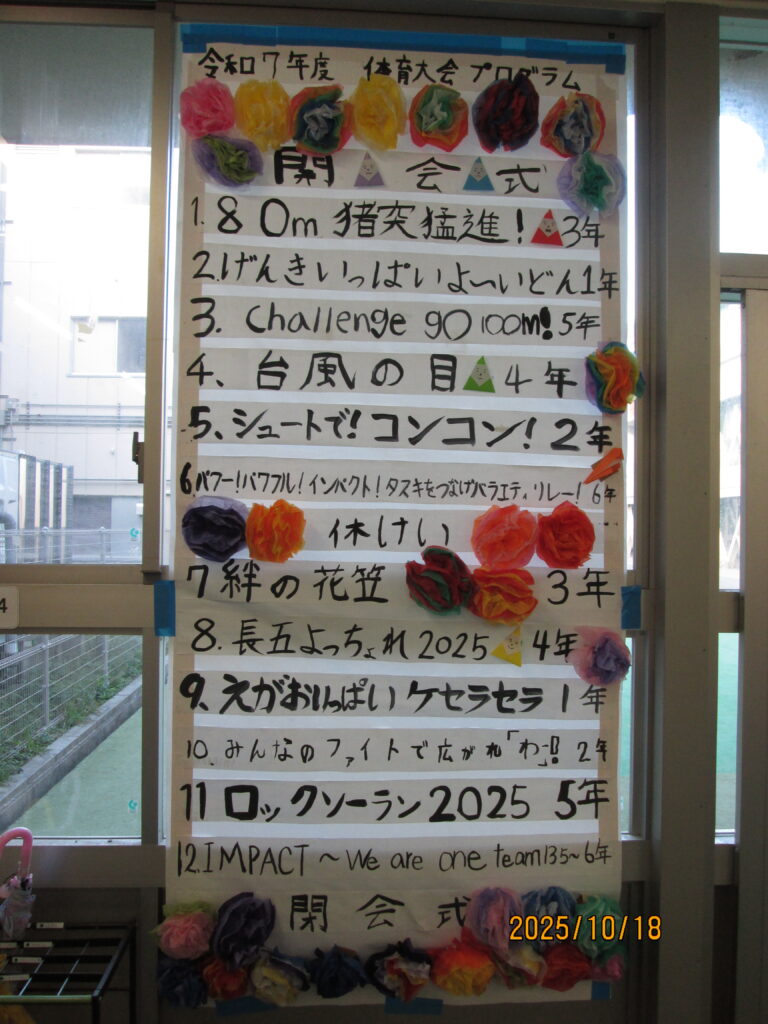 令和7年度 体育大会プログラム
開会式
1. 80m猪突猛進! 3年
2. げんきいっぱいよ〜いどん 1年
3. challenge go 100m! 5年
4、台風の目 4年
5、シュートで!コンコン! 2年
6.パワー!パワフル!インパクト!タスキをつなげバラエティリレー! 6年
休けい
7 絆の花笠 3年
8. 長五よっちょれ2025 4年
9、えがおいっぱいケセラセラ 1年
10.みんなのファイトで広がれ「わっ」!! 2年
11 ロックソーラン2025 5年
12.IMPACT〜We are one team135〜 6年
閉会式
2025/10/18
4